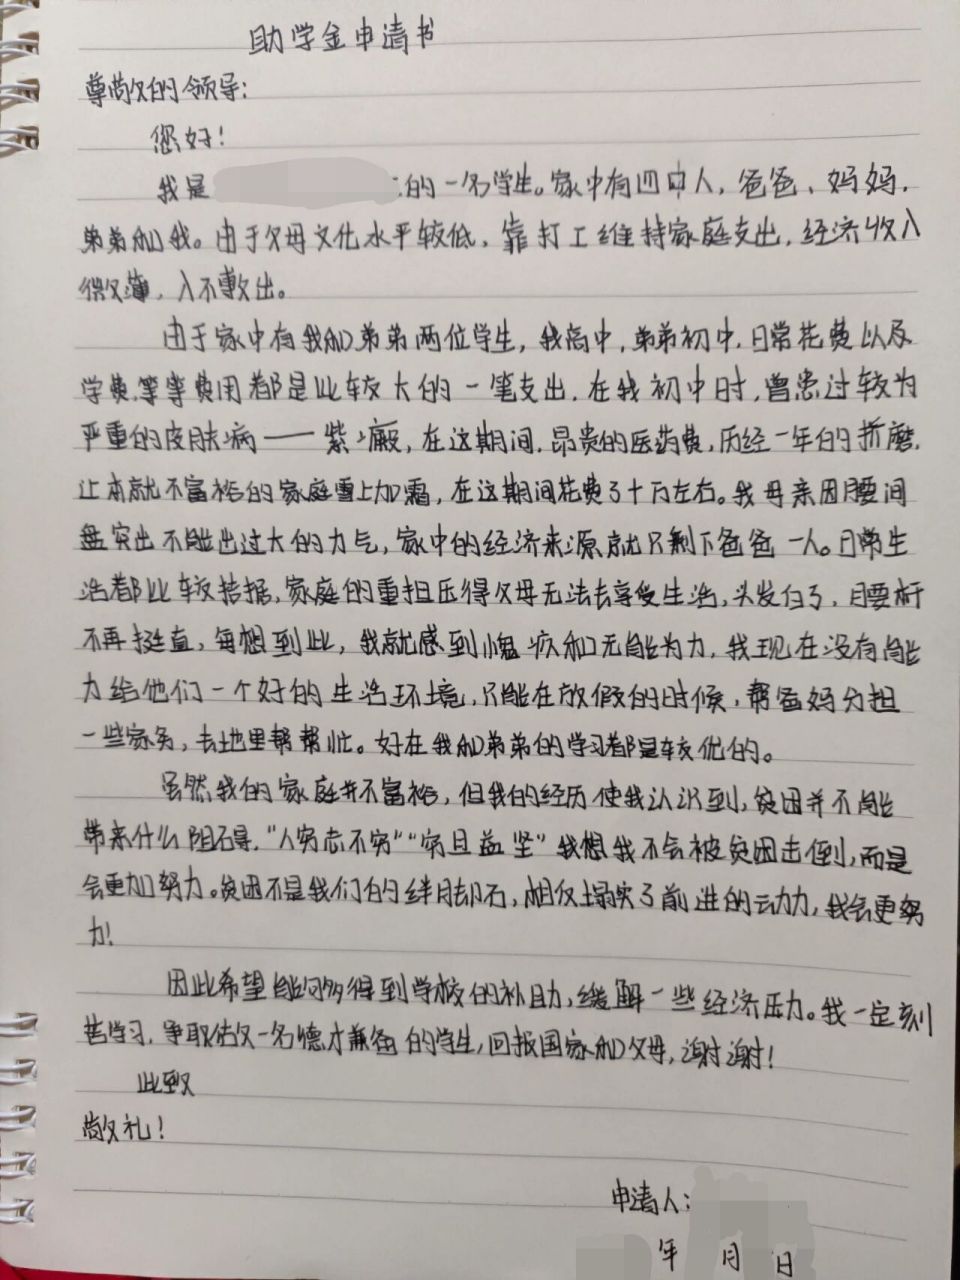 助学金申请书
尊敬的领导:
您好!
我是 的一名学生。家中有四口人,爸爸、妈妈,
弟弟和我。由于父母文化水平较低,靠打工维持家庭支出,经济收入
微薄,入不敷出。
由于家中有我和弟弟两位学生,我高中,弟弟初中,日常花费以及
学费,等等费用都是比较大的一笔支出,在我初中时,曾患过较为
严重的皮肤病——紫癜,在这期间,昂贵的医药费,历经一年的折磨,
让本就不富裕的家庭雪上加霜,在这期间花费了十万左右。我母亲因腰间
盘突出不能出过大的力气,家中的经济来源就只剩下爸爸一人。日常生
活都比较拮据,家庭的重担压得父母无法去享受生活,头发白了,腰杆
不再挺直,每想到此,我就感到愧疚和无能为力,我现在没有能
力给他们一个好的生活环境,只能在放假的时候,帮爸妈分担
一些家务,去地里帮帮忙。好在我和弟弟的学习都是较优的。
虽然我的家庭并不富裕,但我的经历使我认识到,贫困并不能
带来什么阻碍,“人穷志不穷”“穷且益坚”我想我不会被贫困击倒,而是
会更加努力。贫困不是我们的绊脚石,相反塌实了前进的动力,我会更努
力!
因此希望能够得到学校的补助,缓解一些经济压力。我一定刻
苦学习,争取做一名德才兼备的学生,回报国家和父母,谢谢!
此致
敬礼!
申请人:
年 月 日